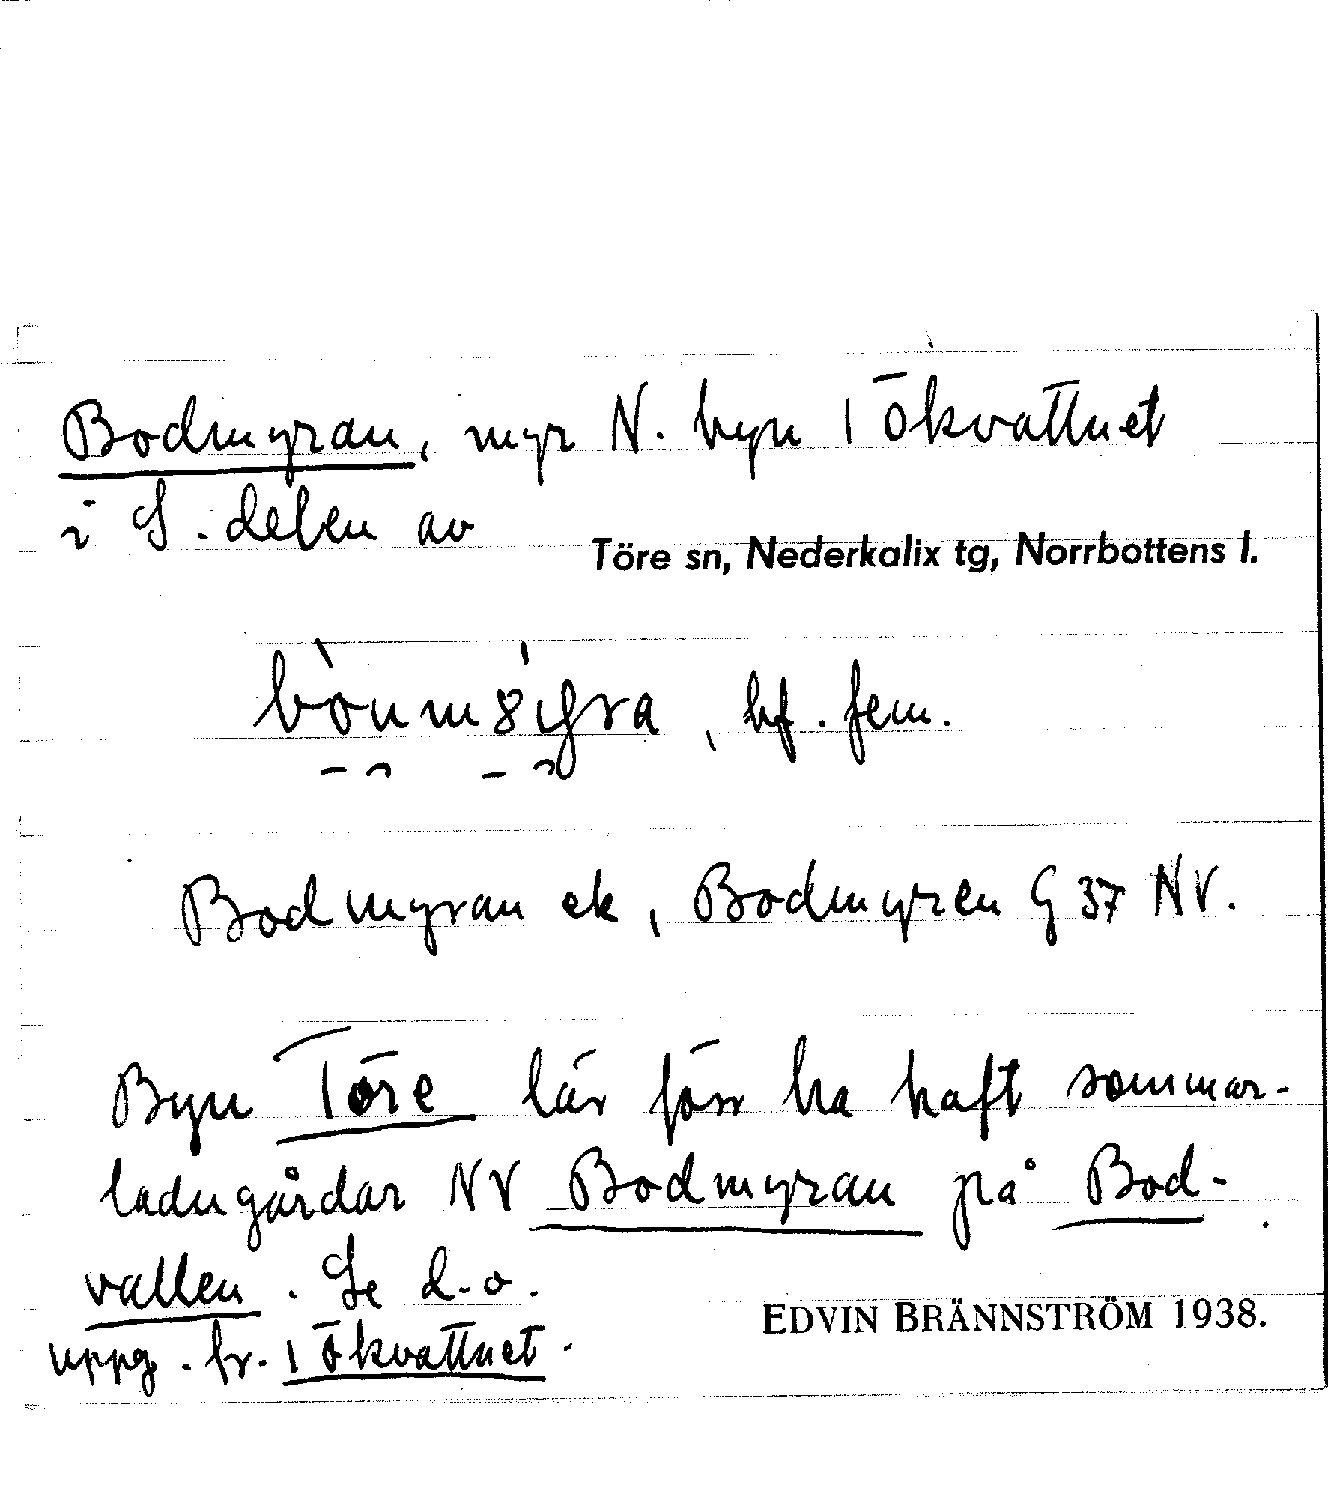 Bodmyran, myr N. byn Tökvattnet
i S. delen av
Töre sn, Nederkalix tg, Norrbottens l.
, bf. fem.
Bodmyran ek, Bodmyren G 37 NV.
Byn Töre lär förr ha haft sommar-
ladugårdar NV Bodmyran på Bod-
vallen. Se d.o.
EDVIN BRÄNNSTRÖM 1938.
uppg. fr. Tökvattnet.